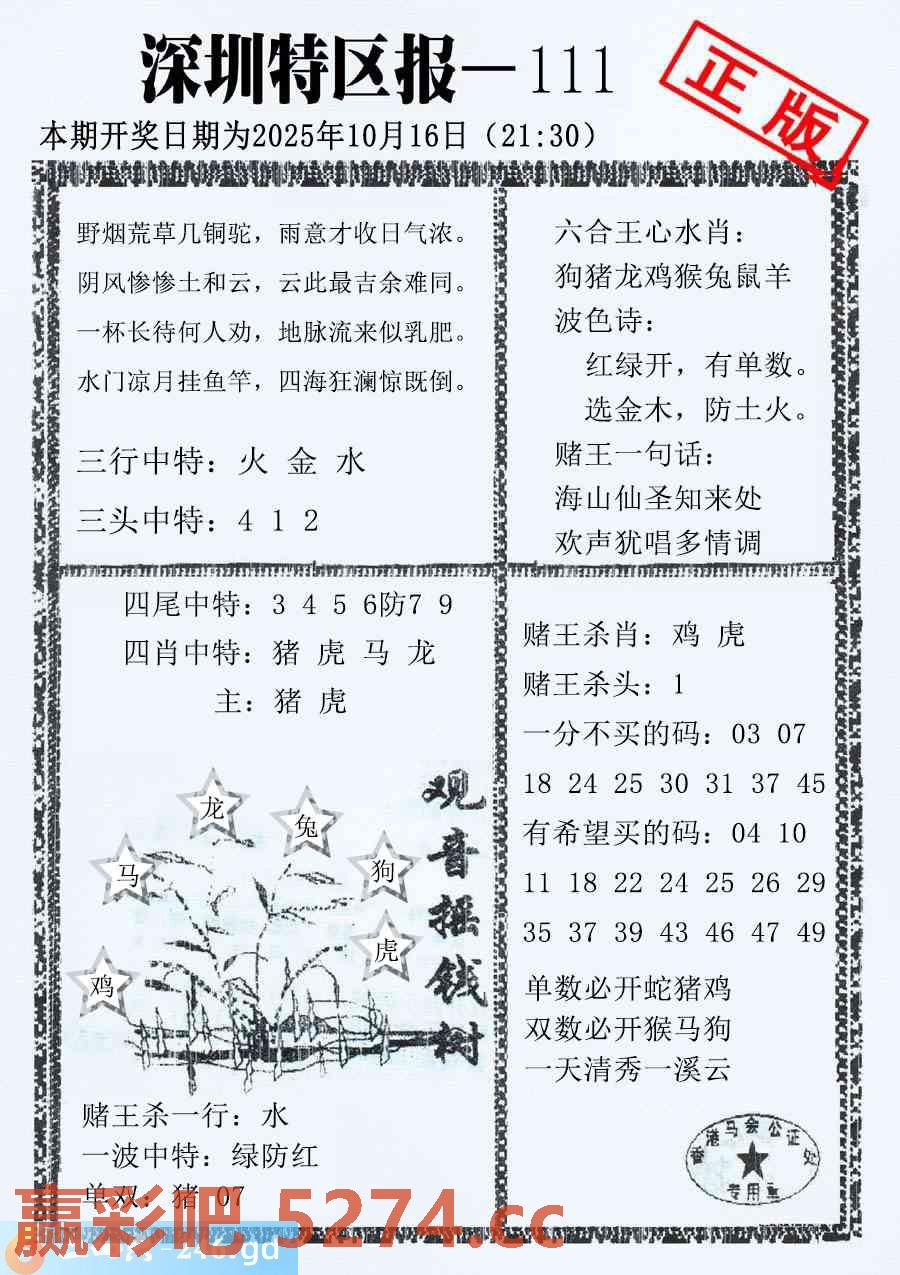 深圳特区报—111
正版
本期开奖日期为2025年10月16日（21:30）
野烟荒草几铜驼，雨意才收日气浓。
阴风惨惨土和云，云此最吉余难同。
一杯长待何人劝，地脉流来似乳肥。
水门凉月挂鱼竿，四海狂澜惊既倒。
三行中特：火 金 水
三头中特：4 1 2
六合王心水肖：
狗猪龙鸡猴兔鼠羊
波色诗：
红绿开，有单数。
选金木，防土火。
赌王一句话：
海山仙圣知来处
欢声犹唱多情调
四尾中特：3 4 5 6防7 9
四肖中特：猪 虎 马 龙
主：猪 虎
观音摇钱树
龙
兔
马
狗
虎
鸡
赌王杀一行：水
一波中特：绿防红
单双：猪 07
赌王杀肖：鸡 虎
赌王杀头：1
一分不买的码：03 07
18 24 25 30 31 37 45
有希望买的码：04 10
11 18 22 24 25 26 29
35 37 39 43 46 47 49
单数必开蛇猪鸡
双数必开猴马狗
一天清秀一溪云
香港马会公证处
专用章
赢彩吧 5274.cc